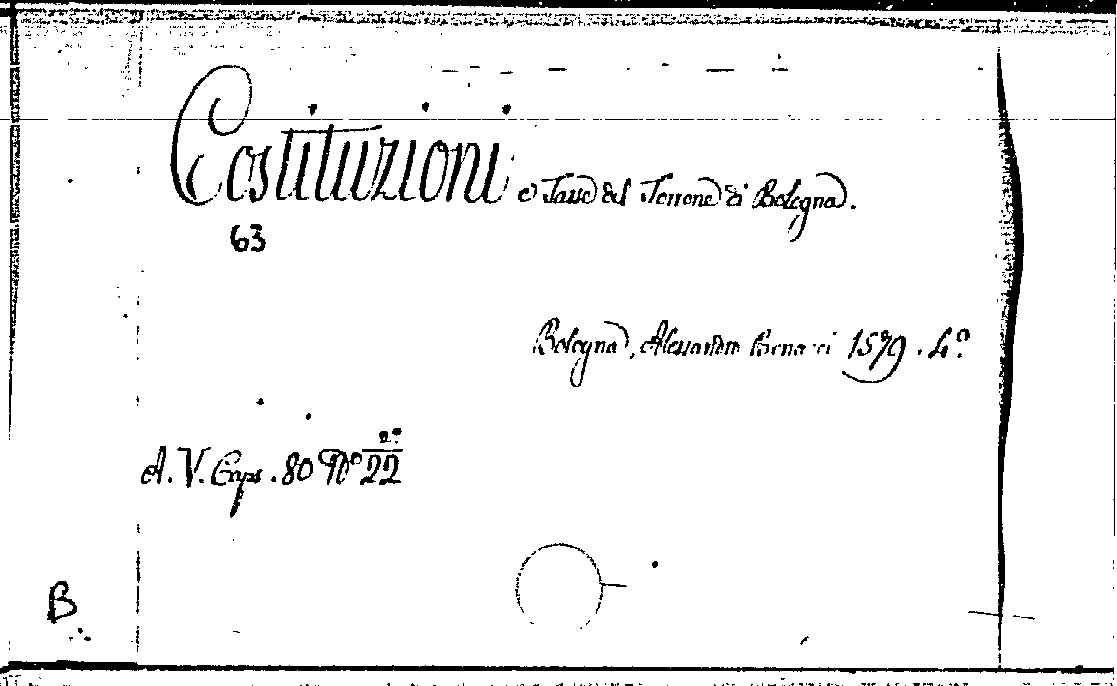 Costituzioni e Tasse del Torrone di Bologna.
63
Bologna, Alessandro Benacci 1579. 4.º
2.º
A. V. Caps. 80 Nº 22
B